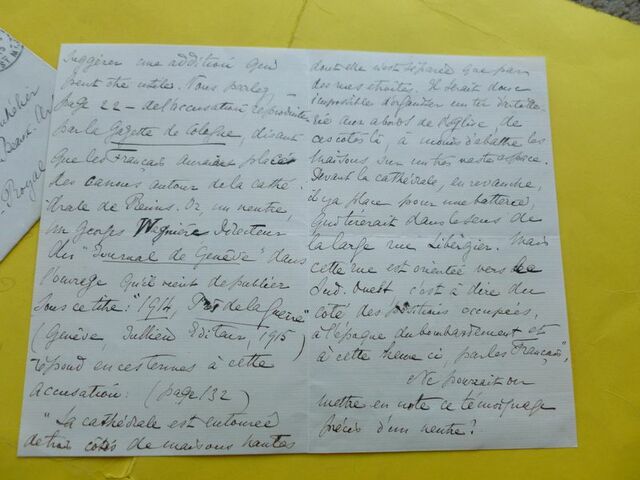 suggérer une addition qui
peut être utile. Vous parlez
page 22 – de l'accusation reproduite
par la Gazette de Cologne, disant
que les Français auraient placé
des canons autour de la cathé-
drale de Reims. Or, un neutre,
Mr Georges Wagnière Directeur
du "Journal de Genève" dans
l'ouvrage qu'il vient de publier
sous ce titre: "1914, Près de la Guerre"
(Genève, Jullien Editeur, 1915)
répond en ces termes à cette
accusation: (page 132)
"La cathédrale est entourée
de trois côtés de maisons hautes
dont elle n'est séparée que par
des rues étroites. Il serait donc
impossible d'organiser un tir d'artille-
rie aux abords de l'église de
ces côtés là, à moins d'abattre les
maisons, sur un très vaste espace.
Devant la cathédrale, en revanche,
il y a place pour une batterie,
qui tirerait dans le sens de
la large rue Libergier. Mais
cette rue est orientée vers le
Sud-Ouest c'est à dire du
côté des positions occupées,
à l'époque du bombardement et
à cette heure ci, par les Français",
Ne pourrait on
mettre en note ce témoignage
précis d'un neutre?
Beaux-Ar
Royal